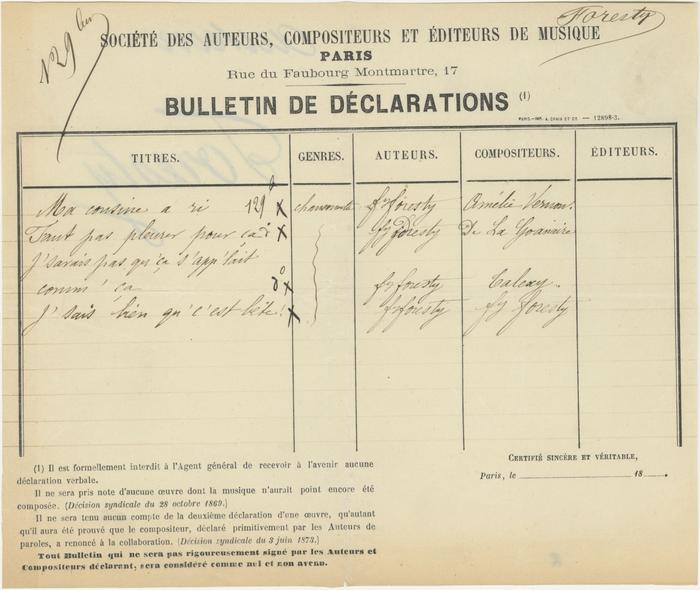 Foresty
SOCIÉTÉ DES AUTEURS, COMPOSITEURS ET ÉDITEURS DE MUSIQUE
PARIS
Rue du Faubourg Montmartre, 17
BULLETIN DE DÉCLARATIONS (1)
PARIS.—IMP. A. CHAIX ET Cie. — 12898-3.
TITRES. GENRES. AUTEURS. COMPOSITEURS. ÉDITEURS.
Ma cousine a ri 129 x chansonnette fy foresty Amélie Vernon.
Faut pas pleurer pour ça x fy foresty De La
J'savais pas qu'ça s'app'lait
comm' ça x fy foresty
J'sais bien qu'c'est bête! x fy foresty fy foresty
(1) Il est formellement interdit à l'Agent général de recevoir à l'avenir aucune
déclaration verbale.
Il ne sera pris note d'aucune œuvre dont la musique n'aurait point encore été
composée. (Décision syndicale du 28 octobre 1869.)
Il ne sera tenu aucun compte de la deuxième déclaration d'une œuvre, qu'autant
qu'il aura été prouvé que le compositeur, déclaré primitivement par les Auteurs de
paroles, a renoncé à la collaboration. (Décision syndicale du 3 juin 1873.)
Tout Bulletin qui ne sera pas rigoureusement signé par les Auteurs et
Compositeurs déclarant, sera considéré comme nul et non avenu.
CERTIFIÉ SINCÈRE ET VÉRITABLE,
Paris, le 18 .